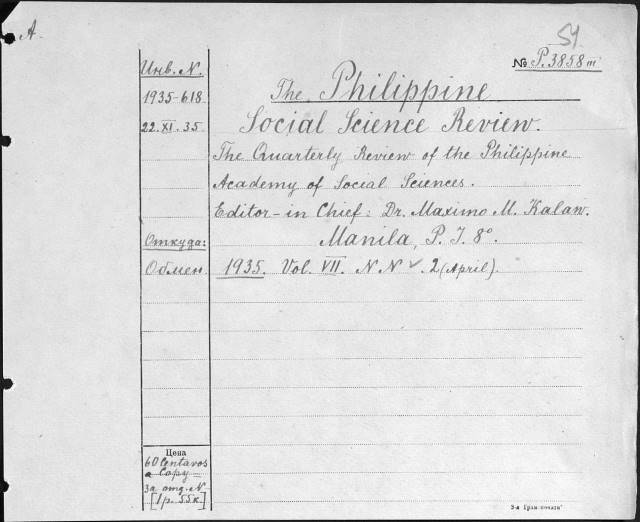 A
54
№ P.3858m
Инв. N.
1935-618
22.XI.35
The Philippine
Social Science Review.
The Quarterly Review of the Philippine
Academy of Social Sciences.
Editor-in Chief: Dr. Maximo M. Kalaw.
Manila, P. I. 8°.
Откуда:
Обмен
1935. Vol. VII. N N ✓. 2 (April).
Цена
60 Centavos
a Copy =
за отд. N
[1р. 55к]
3-я Град. печати